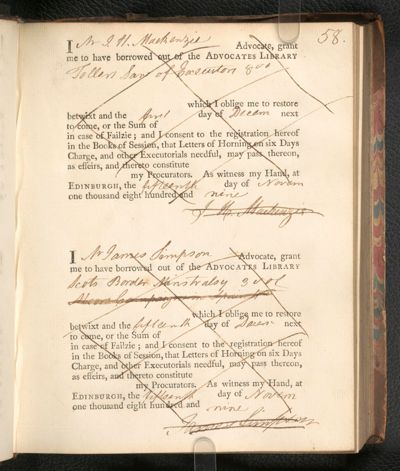 58.
I Mr J. H. Mackenzie Advocate, grant
me to have borrowed out of the ADVOCATES LIBRARY
Tollers Law of Executors 8vo
which I oblige me to restore
betwixt and the first day of Decem next
to come, or the Sum of
in case of Failzie; and I consent to the registration hereof
in the Books of Session, that Letters of Horning on six Days
Charge, and other Executorials needful, may pass thereon,
as effeirs, and thereto constitute
my Procurators. As witness my Hand, at
EDINBURGH, the fifteenth day of Novem
one thousand eight hundred and nine
J. H. Mackenzie
I Mr James Simpson Advocate, grant
me to have borrowed out of the ADVOCATES LIBRARY
Scots Border Minstralsy 3 vol
which I oblige me to restore
betwixt and the fifteenth day of Decem next
to come, or the Sum of
in case of Failzie; and I consent to the registration hereof
in the Books of Session, that Letters of Horning on six Days
Charge, and other Executorials needful, may pass thereon,
as effeirs, and thereto constitute
my Procurators. As witness my Hand, at
EDINBURGH, the fifteenth day of Novem
one thousand eight hundred and nine
James Simpson